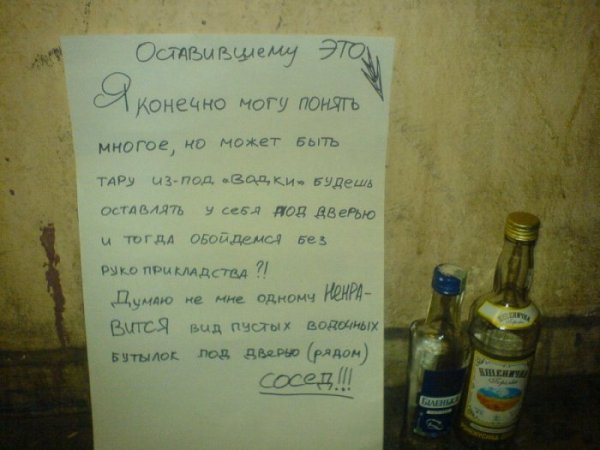 Оставившему это
Я конечно могу понять
многое, но может быть
тару из-под «водки» будешь
оставлять у себя под дверью
и тогда обойдемся без
рукоприкладства?!
Думаю не мне одному ненра-
вится вид пустых водочных
бутылок под дверью (рядом)
сосед!!!
БІЛЕНЬКА
ПШЕНИЧНА